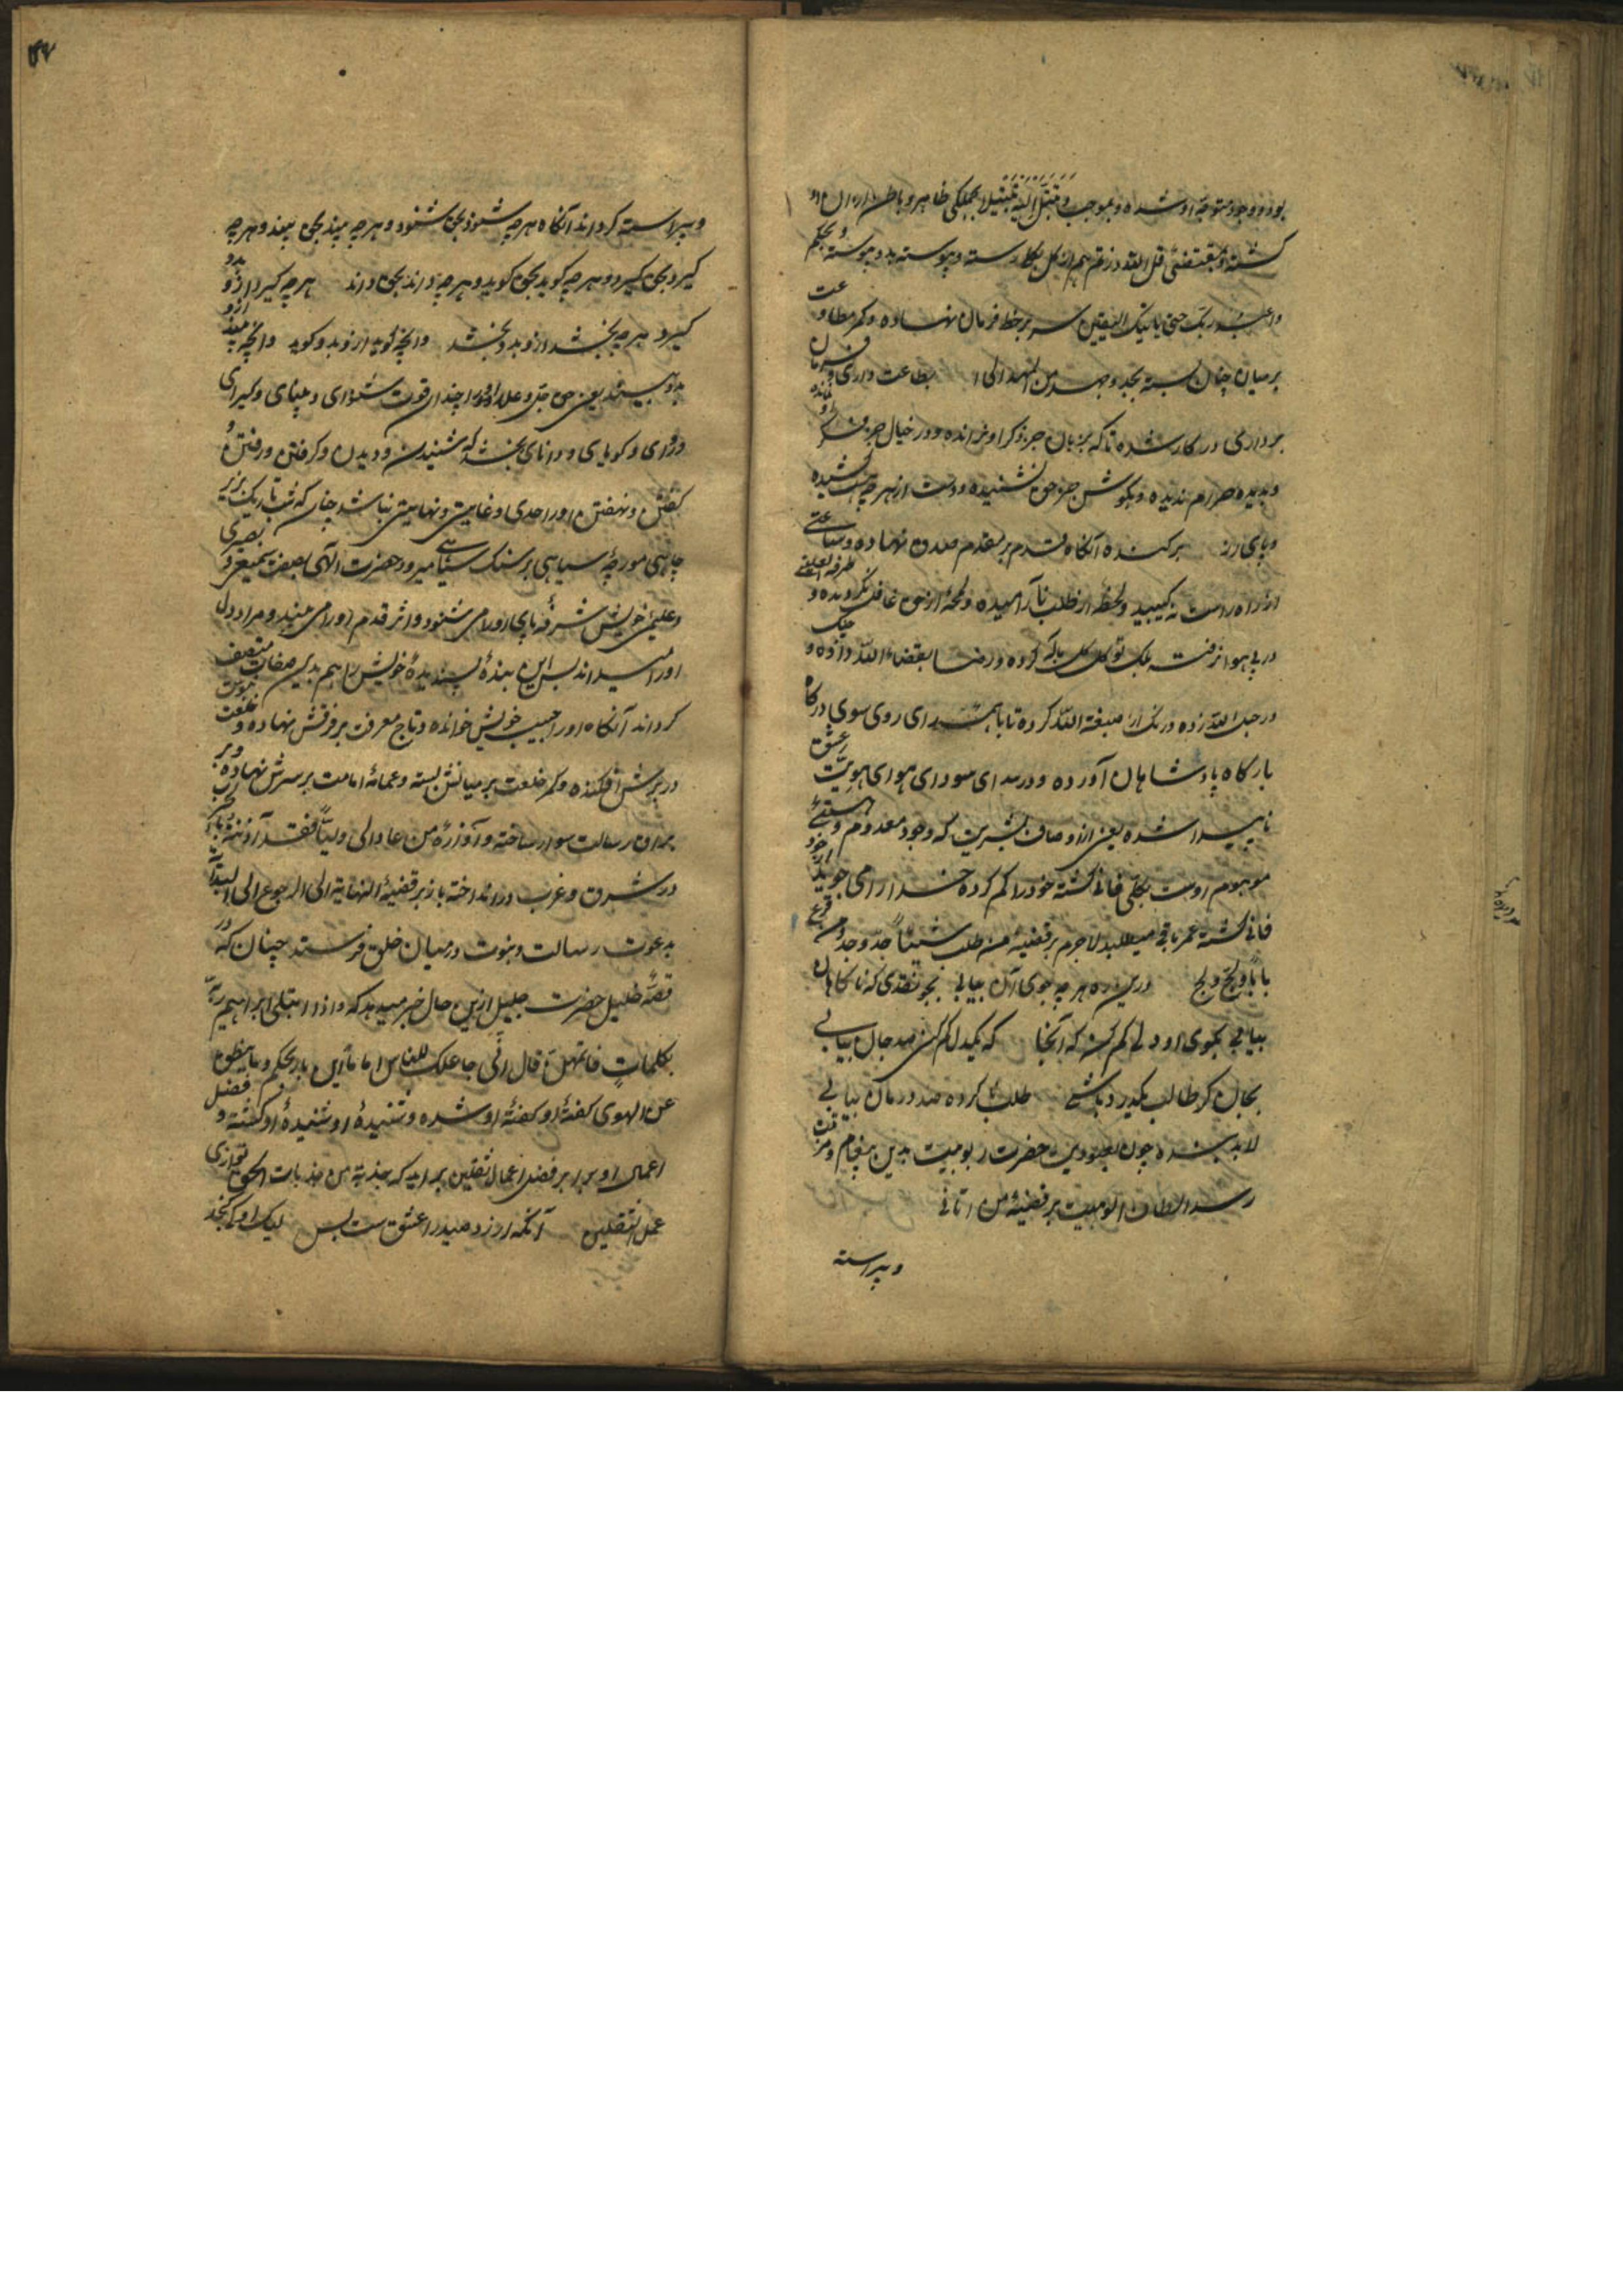 بود و وجود متوجه او شده و بموجب و تبتل الیه تبتیلا بجملکی ظاهر و باطن
کشته و بمقتضی قل الله ثم ذرهم از کل بکل رسته و پیوسته بدو پیوسته و بحکم
واعبد ربک حتی یاتیک الیقین سر بر خط فرمان نهاده و کمر مطاوعت
بر میان جان بسته بجد و جهد من المهد الی بطاعت داری و فرمان
برداری در کار شده تا که بزبان جز ذکر او نرانده و در خیال جز فکر او نمانده
و بدیده حرام ندیده و بکوش جز حق نشنیده و دست از هر چه هست کشیده
و پای از برکنده آنکاه قدم بر مقدم صدق نهاده و ساعتی
از راه راست نه کیبید و لحظهٔ از طلب نا آرامیده و لمحهٔ از حق غافل نکردیده و طرفة العینی
در پی هوا نرفته بلک توکل کل بالله کرده و رضا بقضاء الله داده و چنک
در حبل الله زده و رنک از صبغة الله کرده تا با همتهای روی سوی درکاه
بارکاه پادشاهان آورده و در سر سودای هوای هویت عشق
ناپیدا شده یعنی از اوصاف بشریت که وجود معدوم و هستی
موهوم اوست بکلی فانی کشته خود را کم کرده خدا را می جوید از خود
فانی کشته عمر باقی میطلبد لاجرم بر قضیهٔ من طلب شیئاً جدّ وجد و من قرع
باباً و لجّ ولج درین ره هر چه جوی آن بیابی بجو نقدی که ناکاهان
بیابی بجوی او دلی کم کن که آنجا که یکدل کم کنی صد جان بیابی
بجان کر طالب یکدرد باشی طلب کرده صد درمان بیابی
لابد بنده چون بعبودیت حضرت ربوبیت بدین مقام و مرتبت
رسد الطاف الوهیت بر قضیهٔ من اتانی
و پیراسته
و پیراسته کرداند آنکاه هر چه شنود بحق شنود و هر چه بیند بحق بیند و هر چه
کیرد بحق کیرد و هر چه کوید بحق کوید و هر چه داند بحق داند هر چه کیرد ازو بدو
کیرد هر چه بخشد ازو بدو بخشد وانچه کوید ازو بدو کوید وانچه بیند ازو
بدو بیند یعنی حق جل و علا او را چندان قوت شنوای و بینای و کیرای
و روای و کویای و دانای بخشد که شنیدن و دیدن و کرفتن و رفتن و
کفتن و نهفتن او را حدی و غایتی و نهایتی نباشد چنان که شب تاریک در زیر
چاهی مورچهٔ سیاهی بر سنک سیاهی میرود حضرت الهی بصفت سمیعی و بصیری
و علیمی خویش شرفهٔ پای او را می شنود و اثر قدم او را می بیند و مراد دل
او را میداند پس این بندهٔ پسندیدهٔ خویش را هم بدین صفات متصف
کرداند آنکاه او را حبیب خویش خوانده و تاج معرفت بر فرقش نهاده و خلعت نبوت
در برش افکنده و کمر خلعت بر میانش بسته و عمامهٔ امامت بر سرش نهاده و بر
براق رسالت سوار ساخته و آوازهٔ من عادالی ولیاً فقد آذنته بالحرب
در شرق و غرب در انداخته باز بر قضیهٔ النهایة الی الرجوع الی البدایة
بدعوت رسالت و نبوت در میان خلق فرستد چنان که در
قصهٔ خلیل حضرت جلیل ازین حال خبر میدهد که واذ ابتلی ابراهیم ربه
بکلماتٍ فاتمهن قال انی جاعلک للناس اماماً این بار بحکم و ما ینطق
عن الهوی کفتهٔ او کفتهٔ او شده و شنیدهٔ او شنیدهٔ او کشته و فضل
اعمال او برابر فضل اعمال ثقلین برآید که جذبة من جذبات الحق توازی
عمل الثقلین آنکه ارزد صید را عشق ست بس لیک او کی کنجد